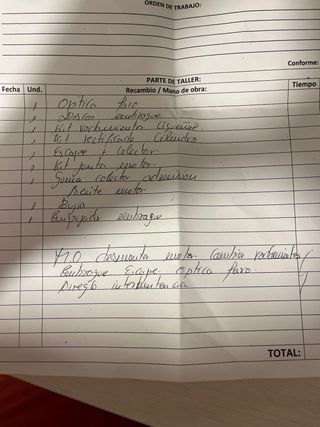 ORDEN DE TRABAJO:
Conforme:
PARTE DE TALLER:
Fecha Und. Recambio / Mano de obra: Tiempo
1 Optica faro
1 Discos embrague
1 Kit rodamientos Cigueñal
1 Kit rectificado Cilindro
1 Escape + Colector
1 Kit junta motor
1 Goma colector admision
Aceite motor
1 Bujia
1 Empujador embrague
M.O. desmontar motor cambiar rodamientos
Embrague Escape Optica faro
Arreglo intermitencia
TOTAL: